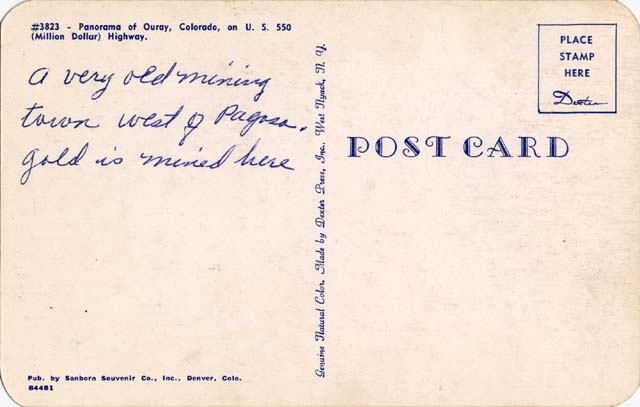 #3823 - Panorama of Ouray, Colorado, on U. S. 550
(Million Dollar) Highway.
a very old mining
town west of Pagosa.
gold is mined here
Pub. by Sanborn Souvenir Co., Inc., Denver, Colo.
84481
Genuine Natural Color. Made by Dexter Press, Inc., West Nyack, N. Y.
PLACE
STAMP
HERE
Dexter
POST CARD